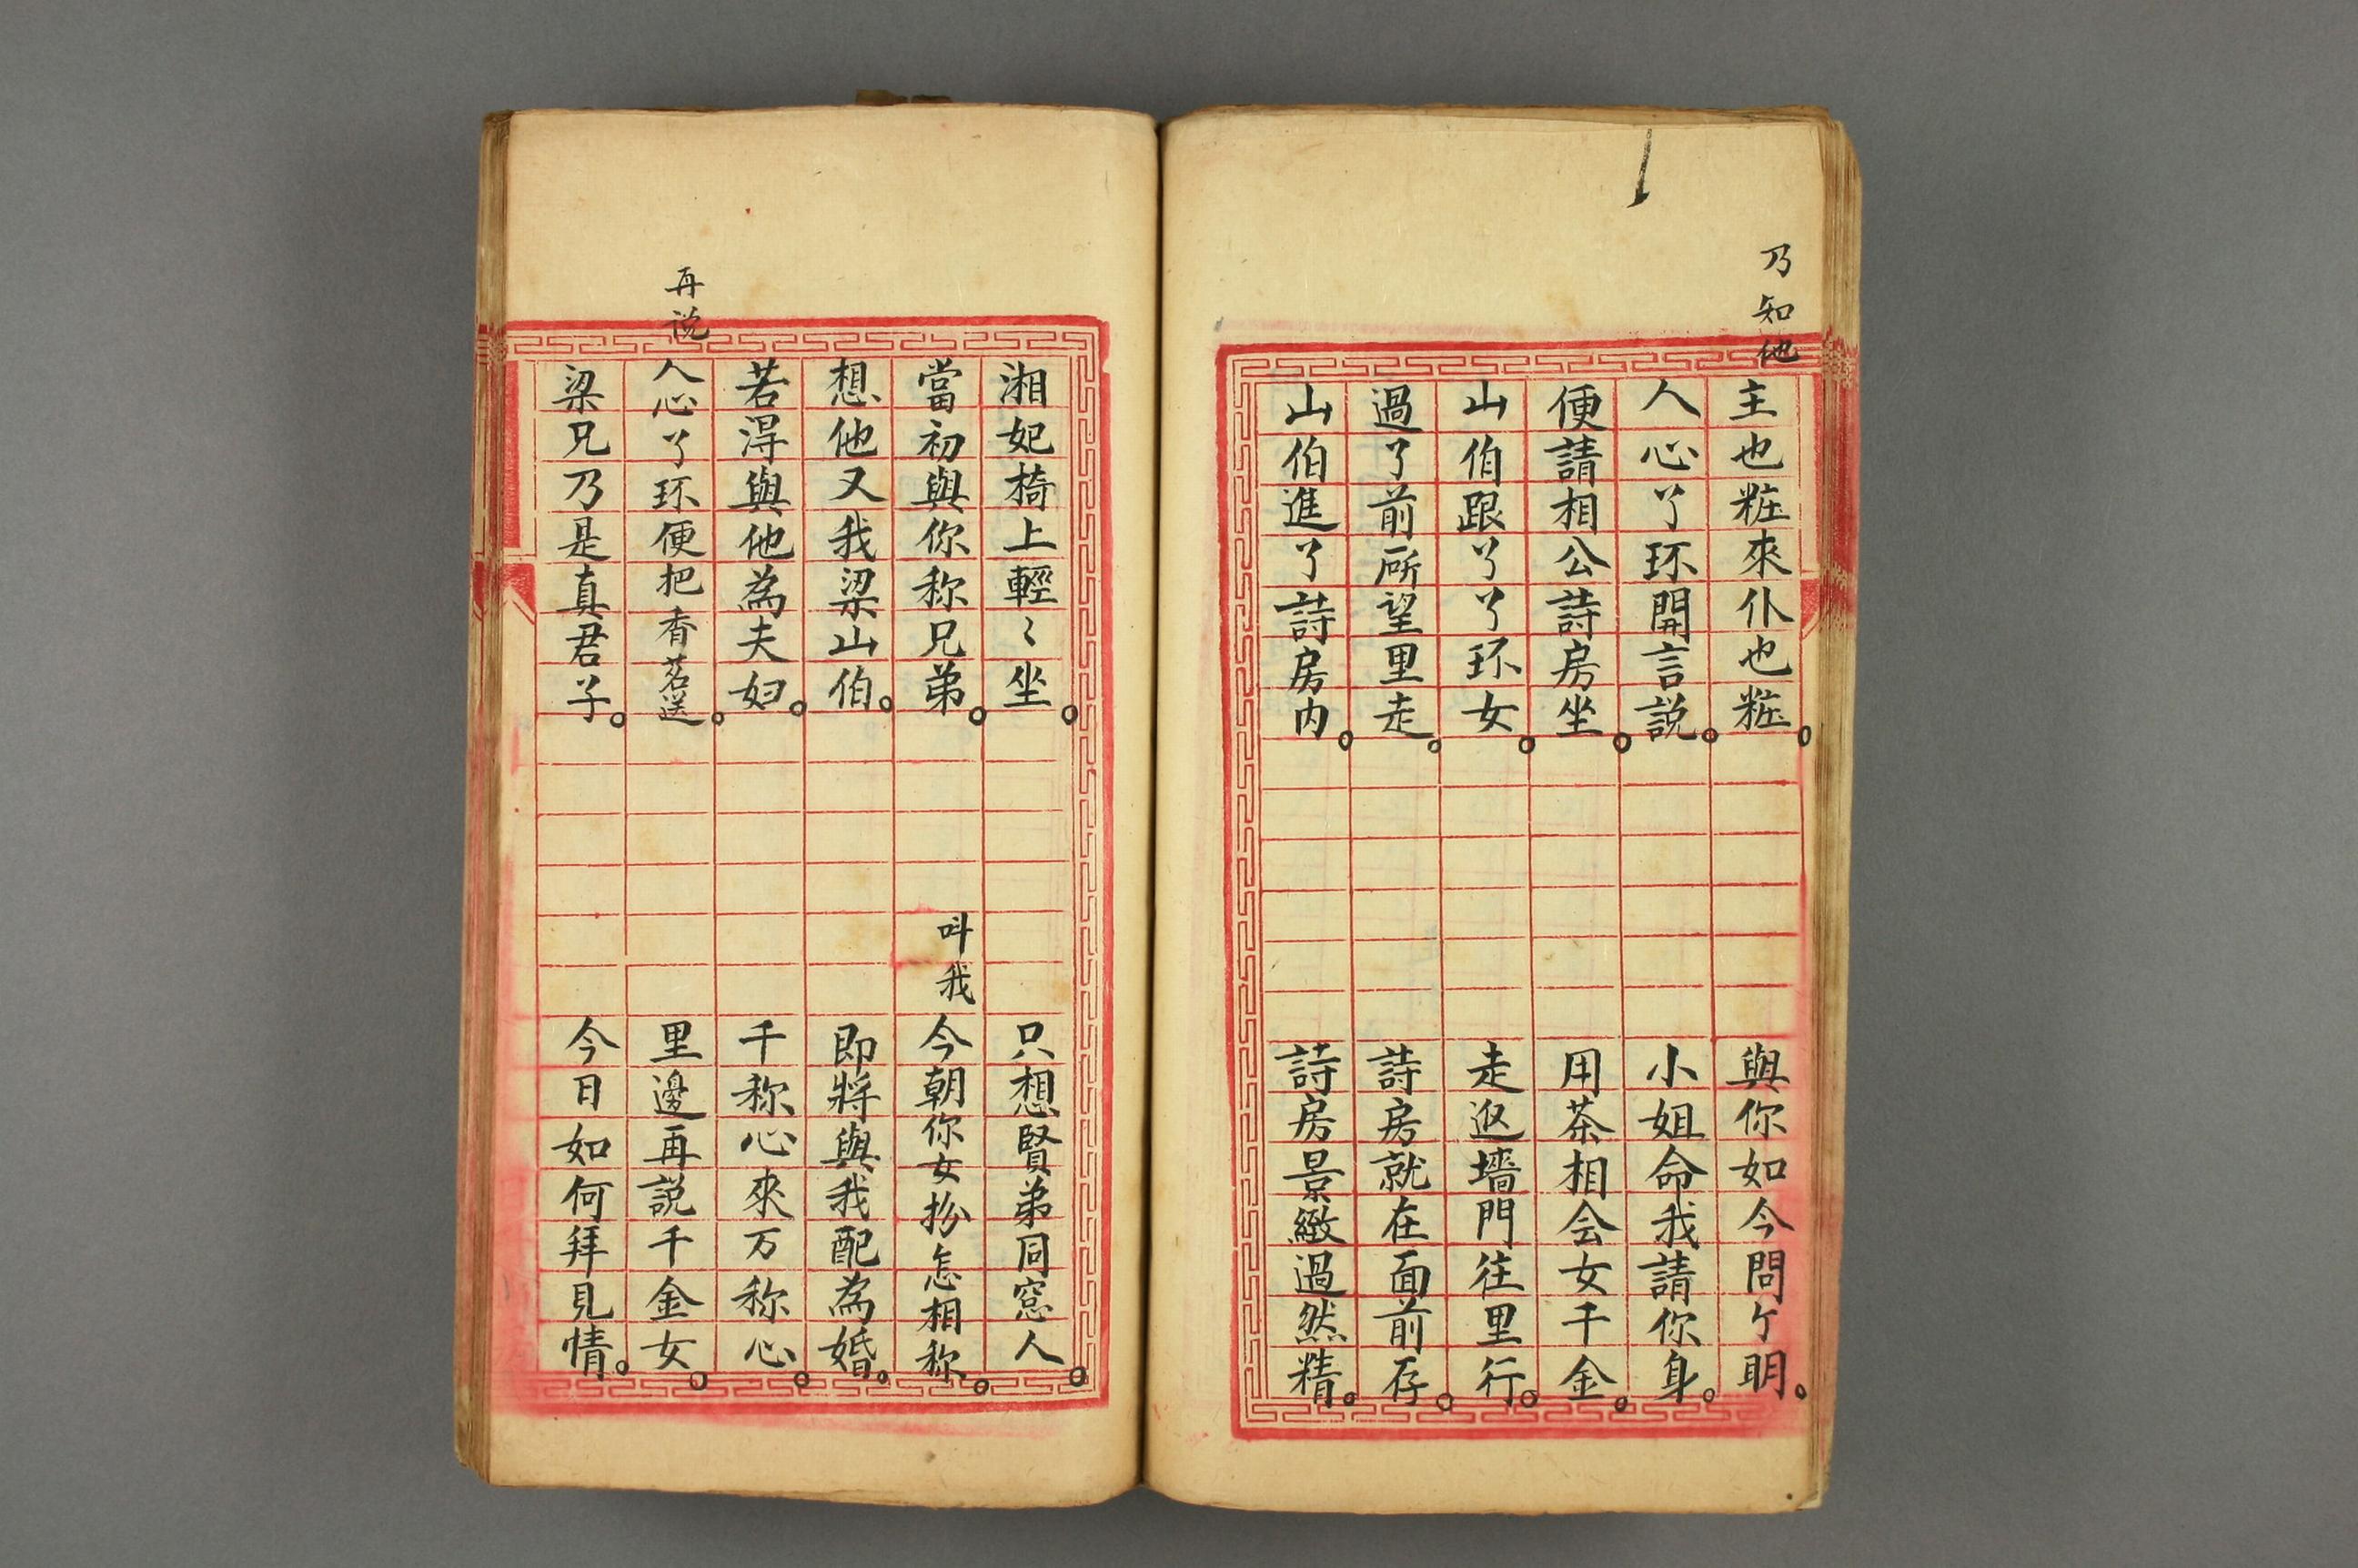 乃知他
主也粧來仆也粧。
與你如今問个明。
人心丫环開言説。
小姐命我請你身。
便請相公詩房坐。
用茶相会女千金。
山伯跟丫丫环女。
走返墻門往里行。
過了前𠩄望里走。
詩房就在面前存。
山伯進了詩房内。
詩房景緻過然精。
湘妃椅上輕〻坐。
只想賢弟同窓人。
當初與你称兄弟。
叫我
今朝你女扮怎相称。
想他又我梁山伯。
即將與我配為婚。
若淂與他為夫妇。
千称心來万称心。
再说
人心丫环便把香茗送。
里邊再説千金女。
梁兄乃是真君子。
今日如何拜見情。